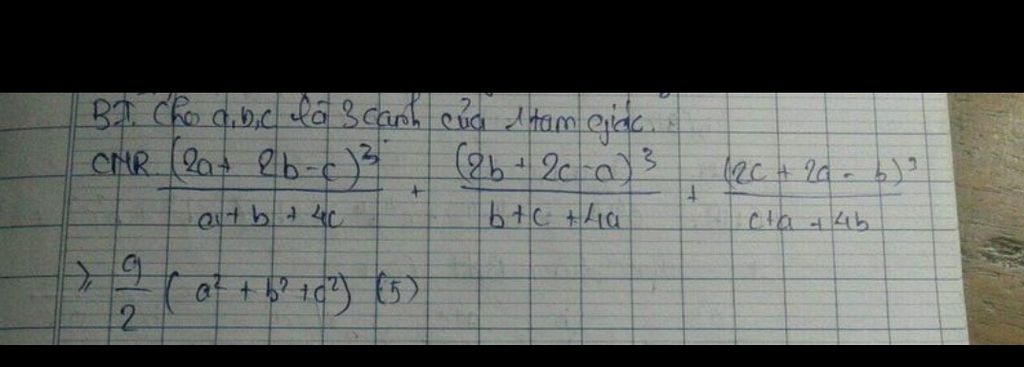 BT. Cho a,b,c là 3 cạnh của 1 tam giác.
CMR (2a + 2b - c)³ / a + b + 4c + (2b + 2c - a)³ / b + c + 4a + (2c + 2a - b)³ / c + a + 4b
≥ 9/2 (a² + b² + c²) (5)